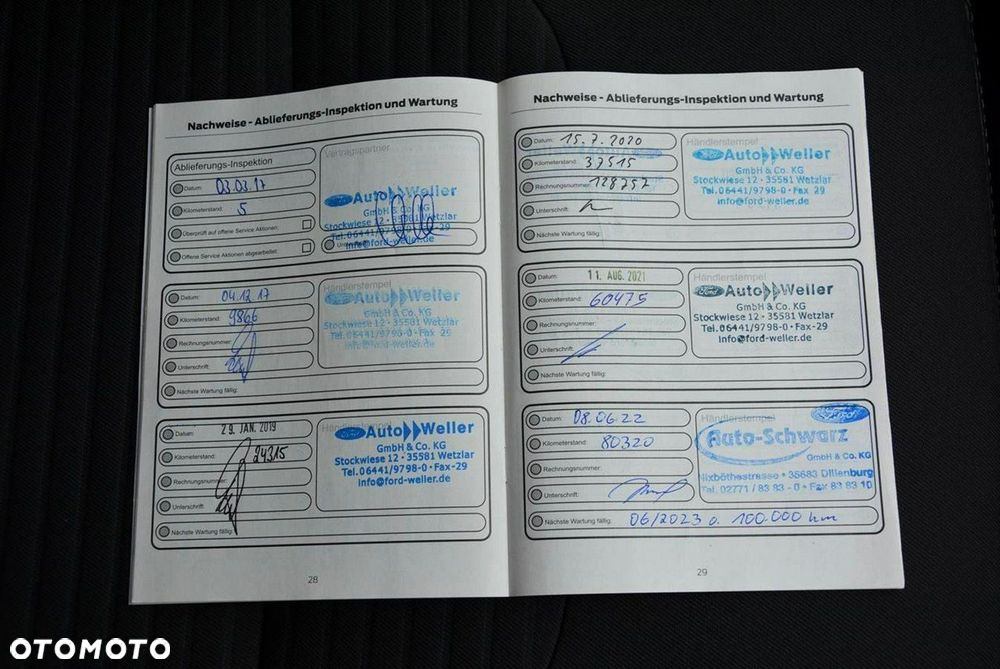 Nachweise - Ablieferungs-Inspektion und Wartung
Ablieferungs-Inspektion
Datum: 03.03.17
Kilometerstand: 5
Überprüft auf offene Service Aktionen:
Offene Service Aktionen abgearbeitet:
Vertragspartner
Ford Auto Weller
GmbH & Co. KG
Stockwiese 12 · 35581 Wetzlar
Tel. 06441/9798-0 · Fax 29
info@ford-weller.de
Datum: 04.12.17
Kilometerstand: 9866
Rechnungsnummer:
Unterschrift:
Nächste Wartung fällig:
Händlerstempel
Ford Auto Weller
GmbH & Co. KG
Stockwiese 12 · 35581 Wetzlar
Tel. 06441/9798-0 · Fax 29
info@ford-weller.de
Datum: 29. JAN. 2019
Kilometerstand: 24315
Rechnungsnummer:
Unterschrift:
Nächste Wartung fällig:
Ford Auto Weller
GmbH & Co. KG
Stockwiese 12 · 35581 Wetzlar
Tel. 06441/9798-0 · Fax-29
info@ford-weller.de
28
Nachweise - Ablieferungs-Inspektion und Wartung
Datum: 15.7.2020
Kilometerstand: 37515
Rechnungsnummer: 128257
Unterschrift:
Nächste Wartung fällig:
Händlerstempel
Ford Auto Weller
GmbH & Co. KG
Stockwiese 12 · 35581 Wetzlar
Tel. 06441/9798-0 · Fax 29
info@ford-weller.de
Datum: 11. AUG. 2021
Kilometerstand: 60475
Rechnungsnummer:
Unterschrift:
Nächste Wartung fällig:
Händlerstempel
Ford Auto Weller
GmbH & Co. KG
Stockwiese 12 · 35581 Wetzlar
Tel. 06441/9798-0 · Fax-29
info@ford-weller.de
Datum: 08.06.22
Kilometerstand: 80320
Rechnungsnummer:
Unterschrift:
Nächste Wartung fällig: 06/2023 o. 100.000 km
Händlerstempel
Ford
Auto-Schwarz
GmbH & Co. KG
35683 Dillenburg
Tel. 02771 / 83 83 - 0 · Fax 83 83 10
29
OTOMOTO